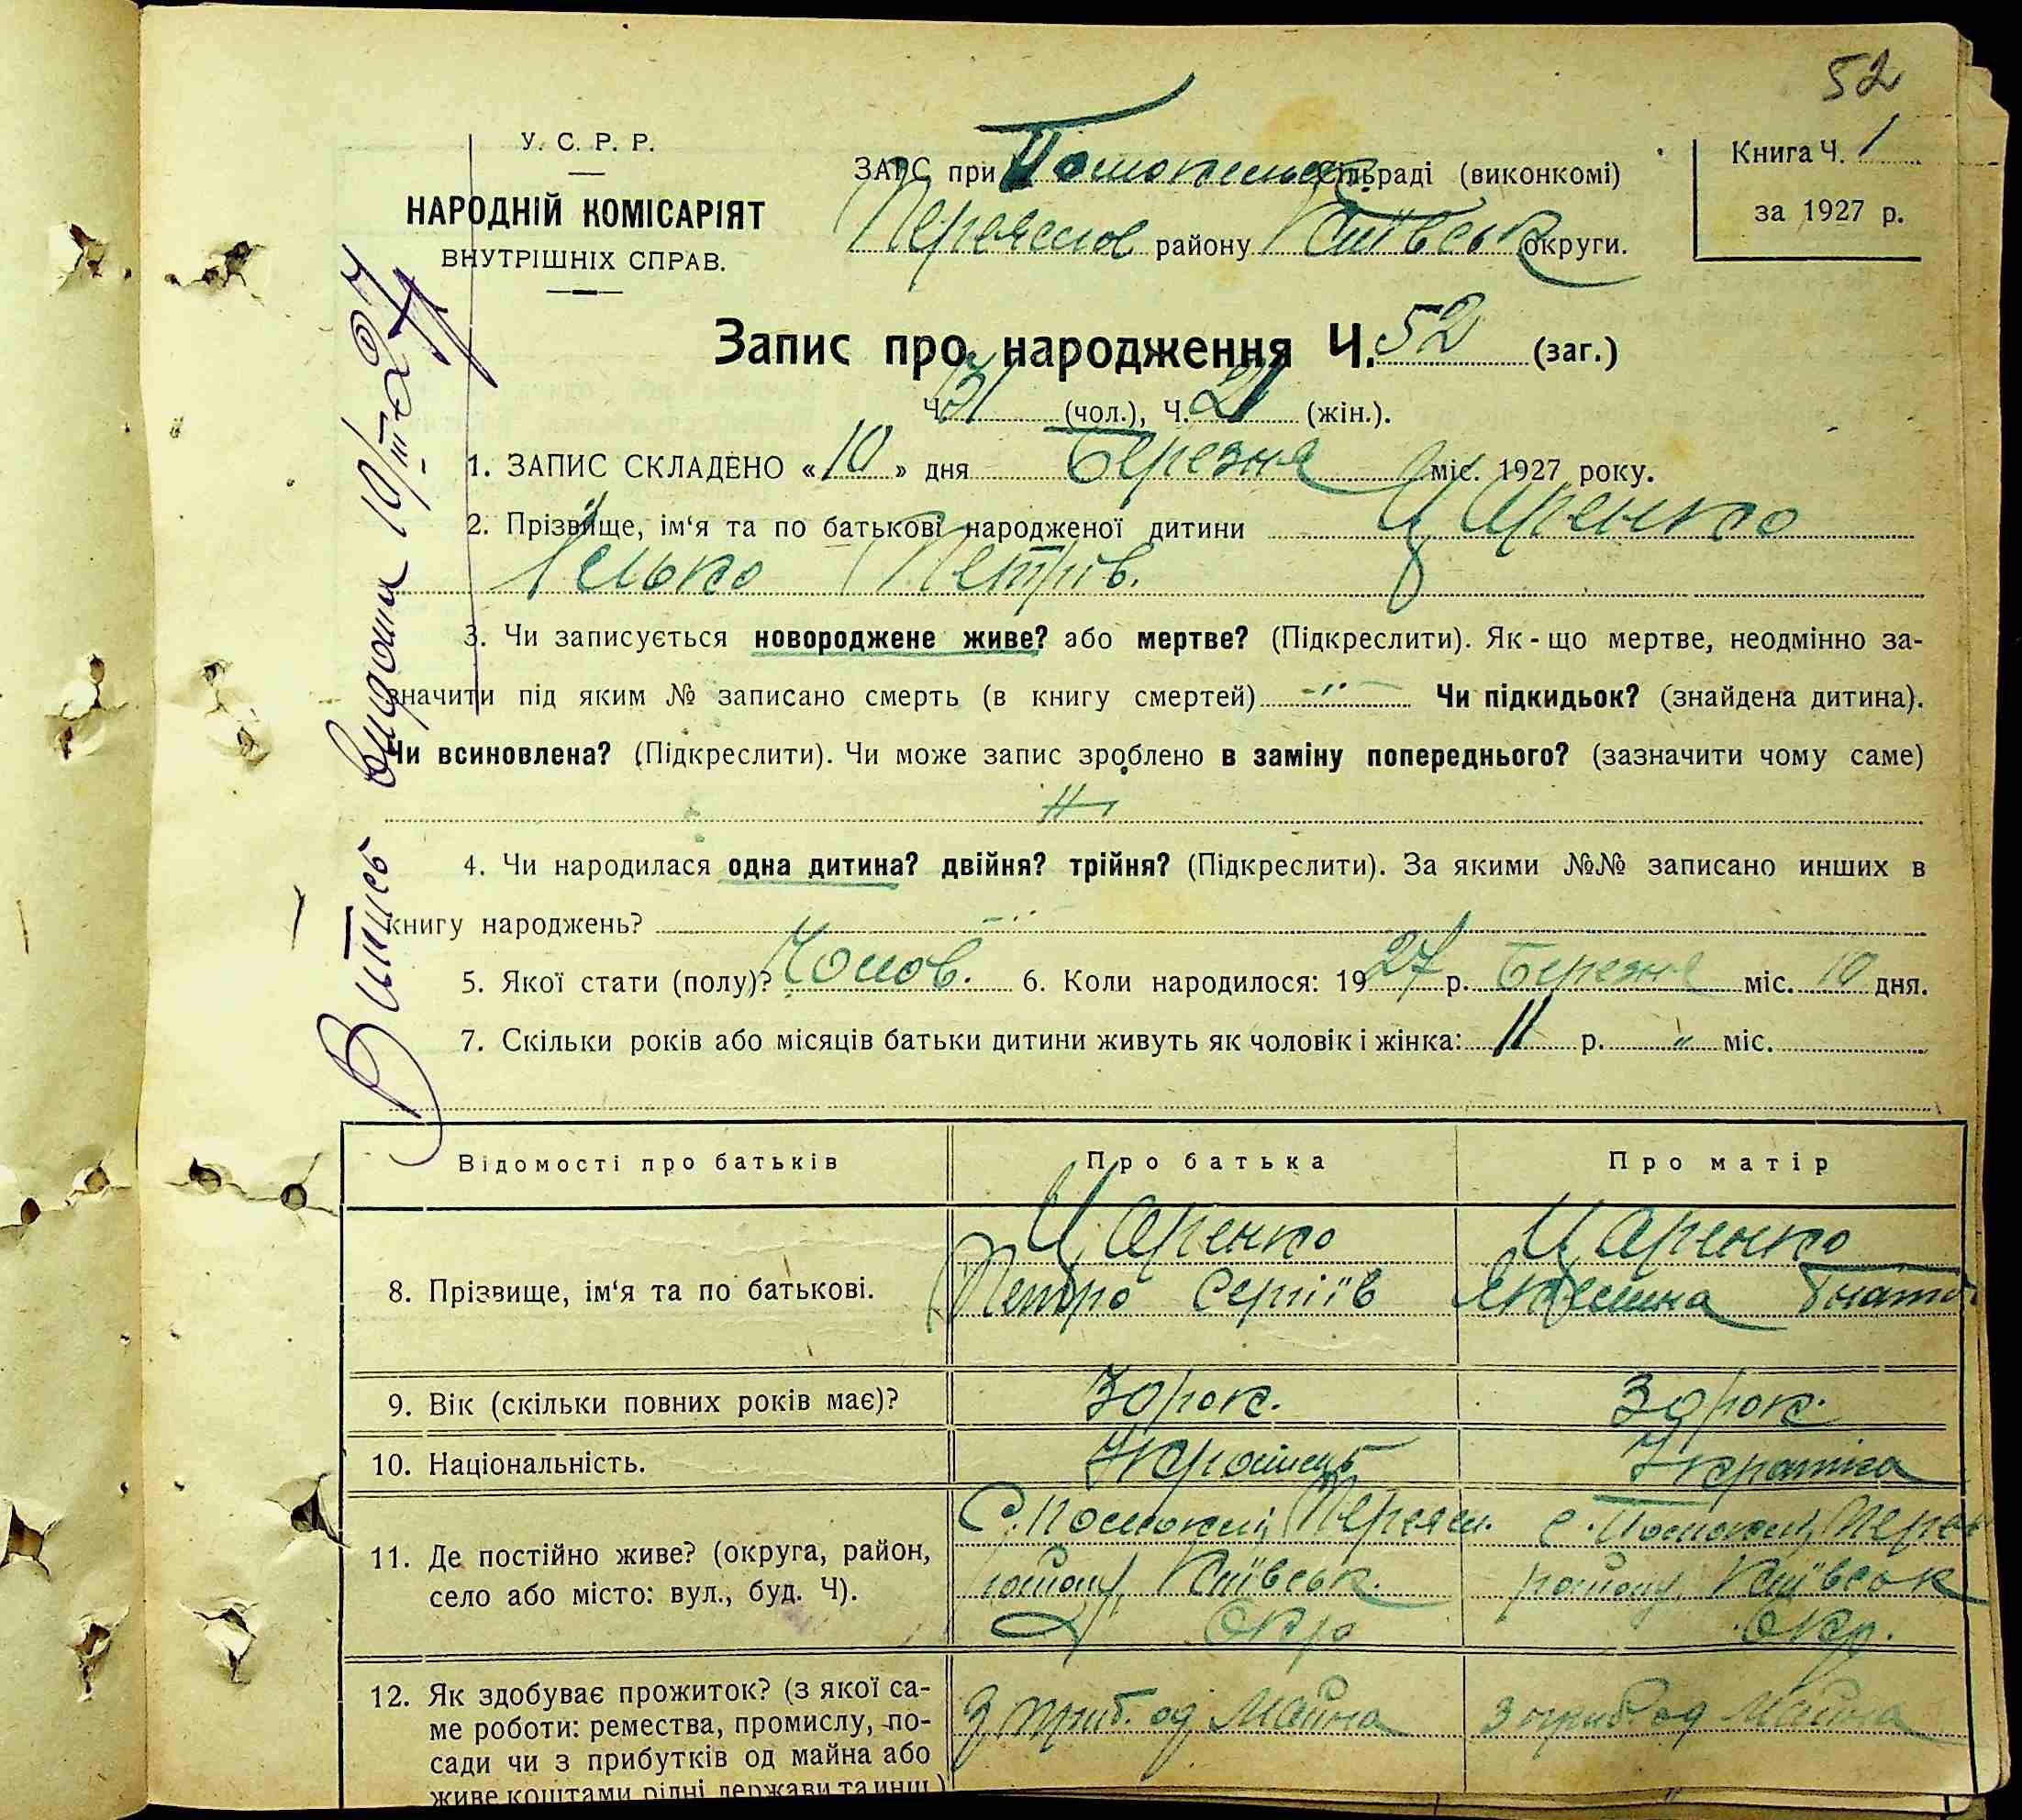 52
У. С. Р. Р.
НАРОДНІЙ КОМІСАРІЯТ
ВНУТРІШНІХ СПРАВ.
ЗАГС при Помокельск. сільраді (виконкомі)
Переяслов району Київськ округи.
Книга Ч. 1
за 1927 р.
Запис про народження Ч. 52 (заг.)
Ч. 31 (чол.), Ч. 21 (жін.).
1. ЗАПИС СКЛАДЕНО «10» дня Березня міс. 1927 року.
2. Прізвище, ім‘я та по батькові народженої дитини Царенко
Ілько Петрів.
3. Чи записується новороджене живе? або мертве? (Підкреслити). Як-що мертве, неодмінно за-
значити під яким № записано смерть (в книгу смертей) Чи підкидьок? (знайдена дитина).
Чи всиновлена? (Підкреслити). Чи може запис зроблено в заміну попереднього? (зазначити чому саме)
4. Чи народилася одна дитина? двійня? трійня? (Підкреслити). За якими №№ записано инших в
книгу народжень?
5. Якої стати (полу)? Чолов. 6. Коли народилося: 1927 р. Березня міс. 10 дня.
7. Скільки років або місяців батьки дитини живуть як чоловік і жінка: 11 р. „ міс.
Витяг видана 10/III-27
Відомості про батьків Про батька Про матір
8. Прізвище, ім‘я та по батькові. Царенко Петро Сергіїв Царенко Гнатов
9. Вік (скільки повних років має)? 30 рок. 30 рок.
10. Національність. Українець Українка
11. Де постійно живе? (округа, район, С. Помокли, Переясл. с. Помокли, Перея
село або місто: вул., буд. Ч). району, Київськ. району, Київськ
Окр Окр.
12. Як здобуває прожиток? (з якої са- З приб. од майна З приб. од майна
ме роботи: ремества, промислу, по-
сади чи з прибутків од майна або
живе коштами рідні, держави та инш.)